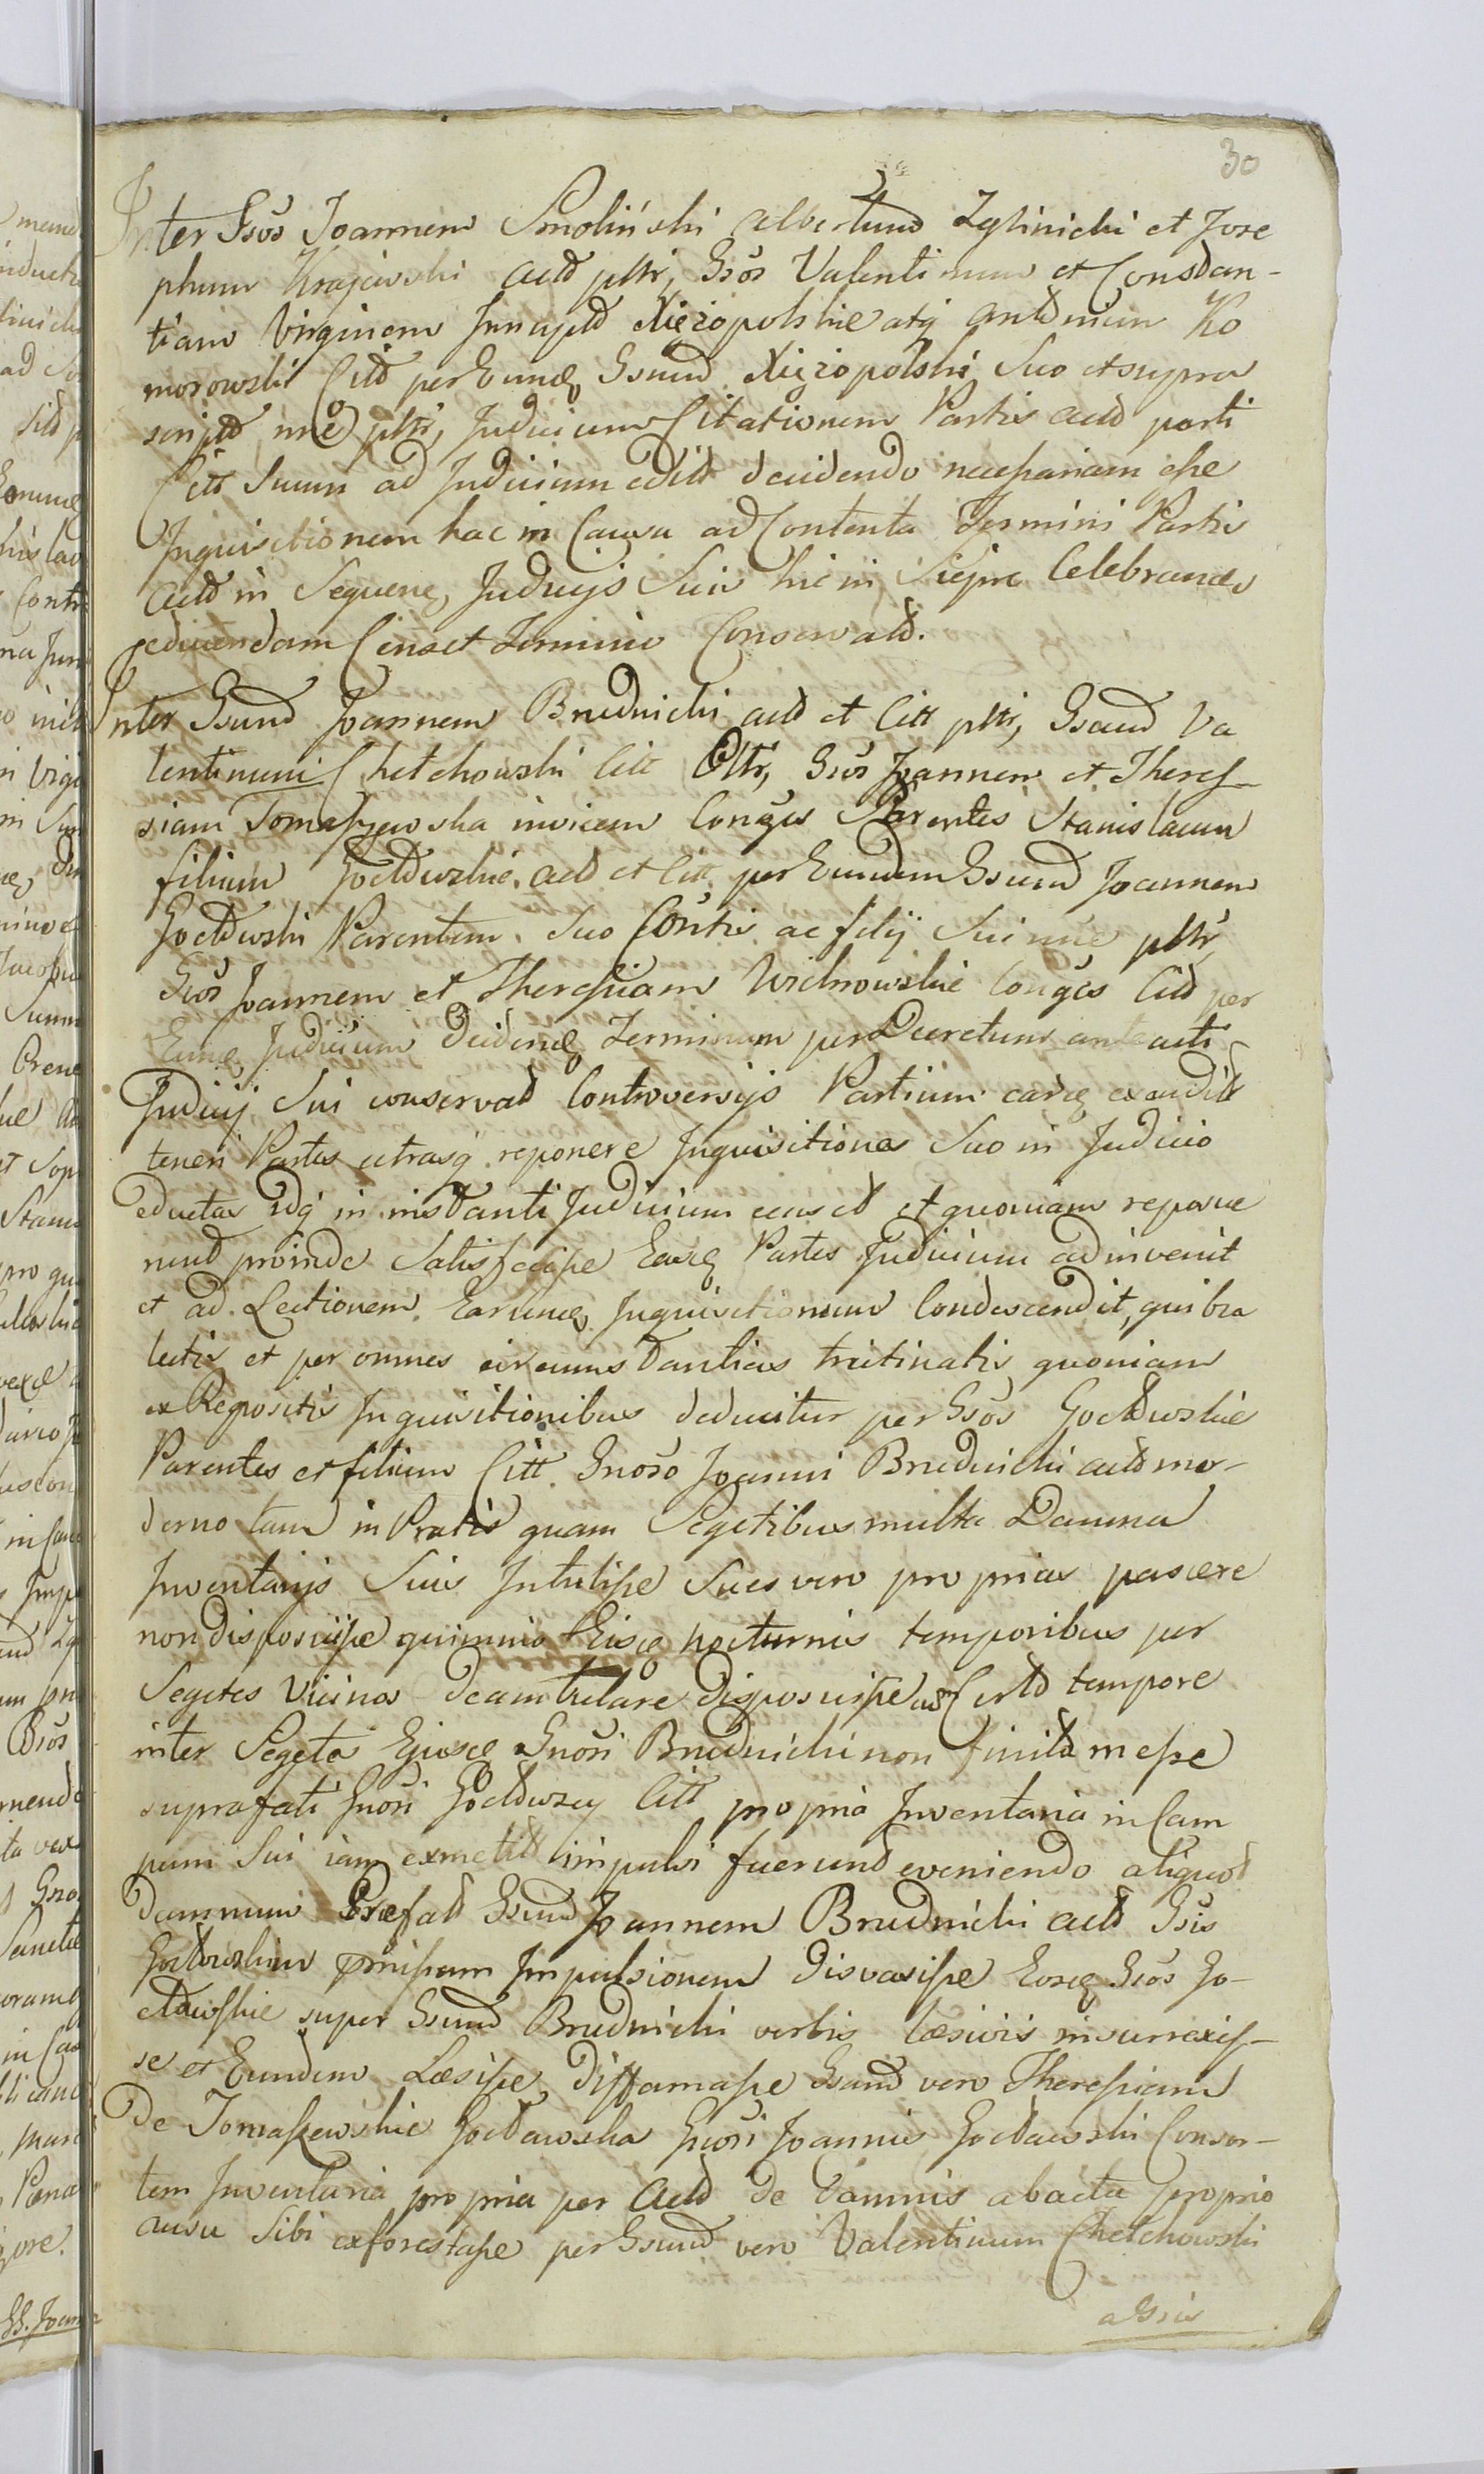 30
Inter Gsos Joannem Smoliński Albertum Zglinicki et Jose
phum Krajewski Act pltr, Gsos Valentinum et Constan-
tiam Virginem Xięzopolskie atq Antonium Ko
morowski Citt per Eund Gsum Xięzopolski Suo et supra
script nne pltr, Judicium Citationem Partis Act parti
Citt Suum ad Judicium edit decidendo necessariam esse
Inquisitionem hac in Causa ad Contenta Termini Partis
Act in Sequen Judicijs Suis hic in Sierpc Celebrand
educendam Censet Termino Conservato.
Inter Gsum Joannem Brudnicki act et Citt pltr, Gsum Va
lentinum Chełchowski Citt Pltr, Gsos Joannem et Theres-
siam Tomaszewska invicem Conges Parentes Stanislaum
filium Goctowskie act et Citt per Eundem Gsum Joannem
Goctowski Parentem Suo Contis ac filij Sui nne pltr
Gsos Joannem et Theressiam Wichrowskie Conges Citt per
Eund Judicium Decidend Terminum per Decretum anteacti
Judicij Sui conservat Controversijs Partium eard exaudit
teneri Partes utrasq reponere Inquisitiones Suo in Judicio
eductas idq in instanti Judicium censet et quoniam reposue
runt proinde Satisfecisse Easd Partes Judicium adinvenit
et ad Lectionem Earund Inquisitionum Condescendit, quibus
lectis et per omnes circumstantias trutinatis quoniam
ex Repositis Inquisitionibus deducitur per Gsos Goctowskie
Parentes et filium Citt Gnoso Joanni Brudnicki act mo-
derno tam in Pratis quam Segetibus multa Damna
Inventarijs Suis Intulisse Sues vero proprias pascere
non disposuisse quinimo Eisd nocturnis temporibus per
Segetes Vicinos deambulare disposuisse ac Certo tempore
inter Segetes Ejusd Gnosi Brudnicki non finita messe
suprafati Gnosi Goctowscy Citt propria Inventaria in Cam
pum Sui iam exmetit impulsi fuerunt eveniendo aliquod
damnum Praefat Gsum Joannem Brudnicki act Gsis
Goctowskim Impulsionem disvasisse Eosd Gsos Go-
ctowskie super Gsum Brudnicki verbis laesivis insurrexis-
se et Eundem Laesisse, Diffamasse Gsam vero Theressiam
de Tomaszewskie Goctowska Gnosi Joannis Goctowski Consor-
tem Inventaria propria per Act de damnis abacta proprio
ausu Sibi exforestasse per Gsum vero Valentinum Chełchowski
a Gsis